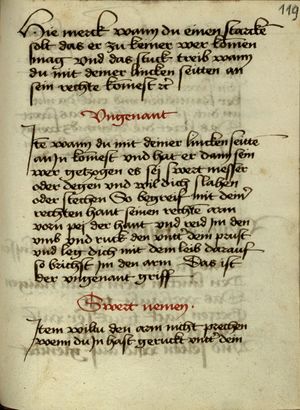 119
Hie merck wann du einen starcke
solt das er zu keiner wer komen
mag Vnd das stuck treib wann
du mit deiner lincken seitten an
sein rechte komest rc
Vngenant
Ite wann du mit deiner lincken seitte
an In komest Vnd hat er dann sein
wer getzogen es sej swert messer
oder degen vnd wil dich slahen
oder stechen So begreif mit deiner
rechten hant seinen rechte arm
vorn pej der hant vnd reid im den
vmb vnd ruck den vnter dein prust
vnd leg dich mit dem leib darauf
so brichst im den arm Das ist
der vngenant griff
Swert nemen.
Item wiltu den arm nicht prechen
Wenn du In hast geruckt vnter dein